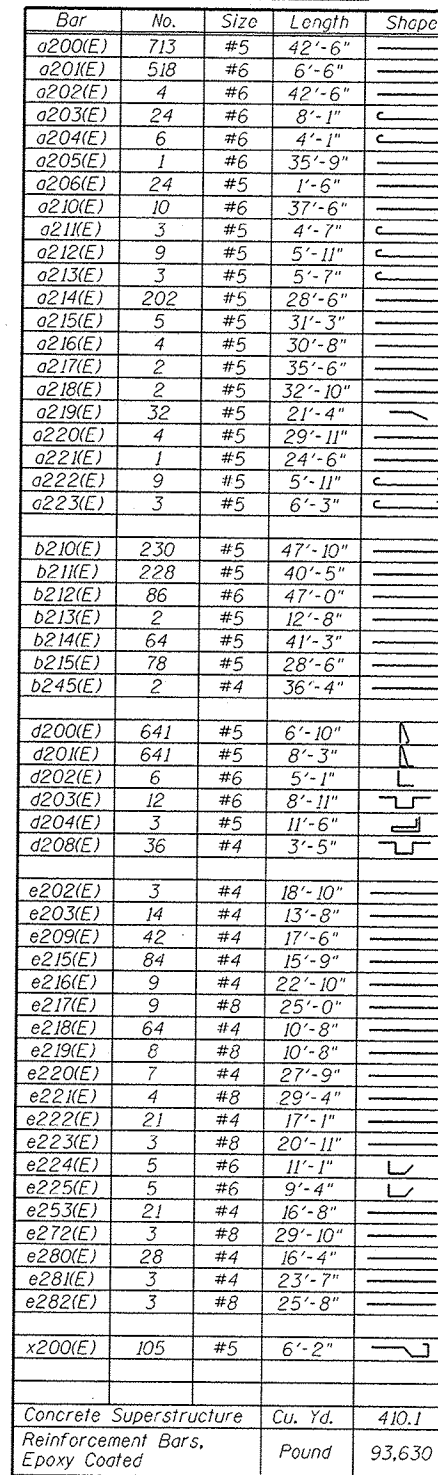 Bar No. Size Length Shape
a200(E) 713 #5 42'-6"
a201(E) 518 #6 6'-6"
a202(E) 4 #6 42'-6"
a203(E) 24 #6 8'-1"
a204(E) 6 #6 4'-1"
a205(E) 1 #6 35'-9"
a206(E) 24 #5 1'-6"
a210(E) 10 #6 37'-6"
a211(E) 3 #5 4'-7"
a212(E) 9 #5 5'-11"
a213(E) 3 #5 5'-7"
a214(E) 202 #5 28'-6"
a215(E) 5 #5 31'-3"
a216(E) 4 #5 30'-8"
a217(E) 2 #5 35'-6"
a218(E) 2 #5 32'-10"
a219(E) 32 #5 21'-4"
a220(E) 4 #5 29'-11"
a221(E) 1 #5 24'-6"
a222(E) 9 #5 5'-11"
a223(E) 3 #5 6'-3"
b210(E) 230 #5 47'-10"
b211(E) 228 #5 40'-5"
b212(E) 86 #6 47'-0"
b213(E) 2 #5 12'-8"
b214(E) 64 #5 41'-3"
b215(E) 78 #5 28'-6"
b245(E) 2 #4 36'-4"
d200(E) 641 #5 6'-10"
d201(E) 641 #5 8'-3"
d202(E) 6 #6 5'-1"
d203(E) 12 #6 8'-11"
d204(E) 3 #5 11'-6"
d208(E) 36 #4 3'-5"
e202(E) 3 #4 18'-10"
e203(E) 14 #4 13'-8"
e209(E) 42 #4 17'-6"
e215(E) 84 #4 15'-9"
e216(E) 9 #4 22'-10"
e217(E) 9 #8 25'-0"
e218(E) 64 #4 10'-8"
e219(E) 8 #8 10'-8"
e220(E) 7 #4 27'-9"
e221(E) 4 #8 29'-4"
e222(E) 21 #4 17'-1"
e223(E) 3 #8 20'-11"
e224(E) 5 #6 11'-1"
e225(E) 5 #6 9'-4"
e253(E) 21 #4 16'-8"
e272(E) 3 #8 29'-10"
e280(E) 28 #4 16'-4"
e281(E) 3 #4 23'-7"
e282(E) 3 #8 25'-8"
x200(E) 105 #5 6'-2"
Concrete Superstructure Cu. Yd. 410.1
Reinforcement Bars,
Epoxy Coated Pound 93,630